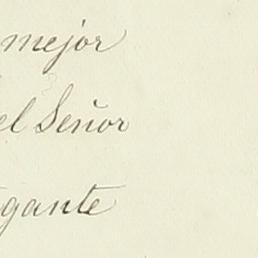 mejor
el Señor
gante